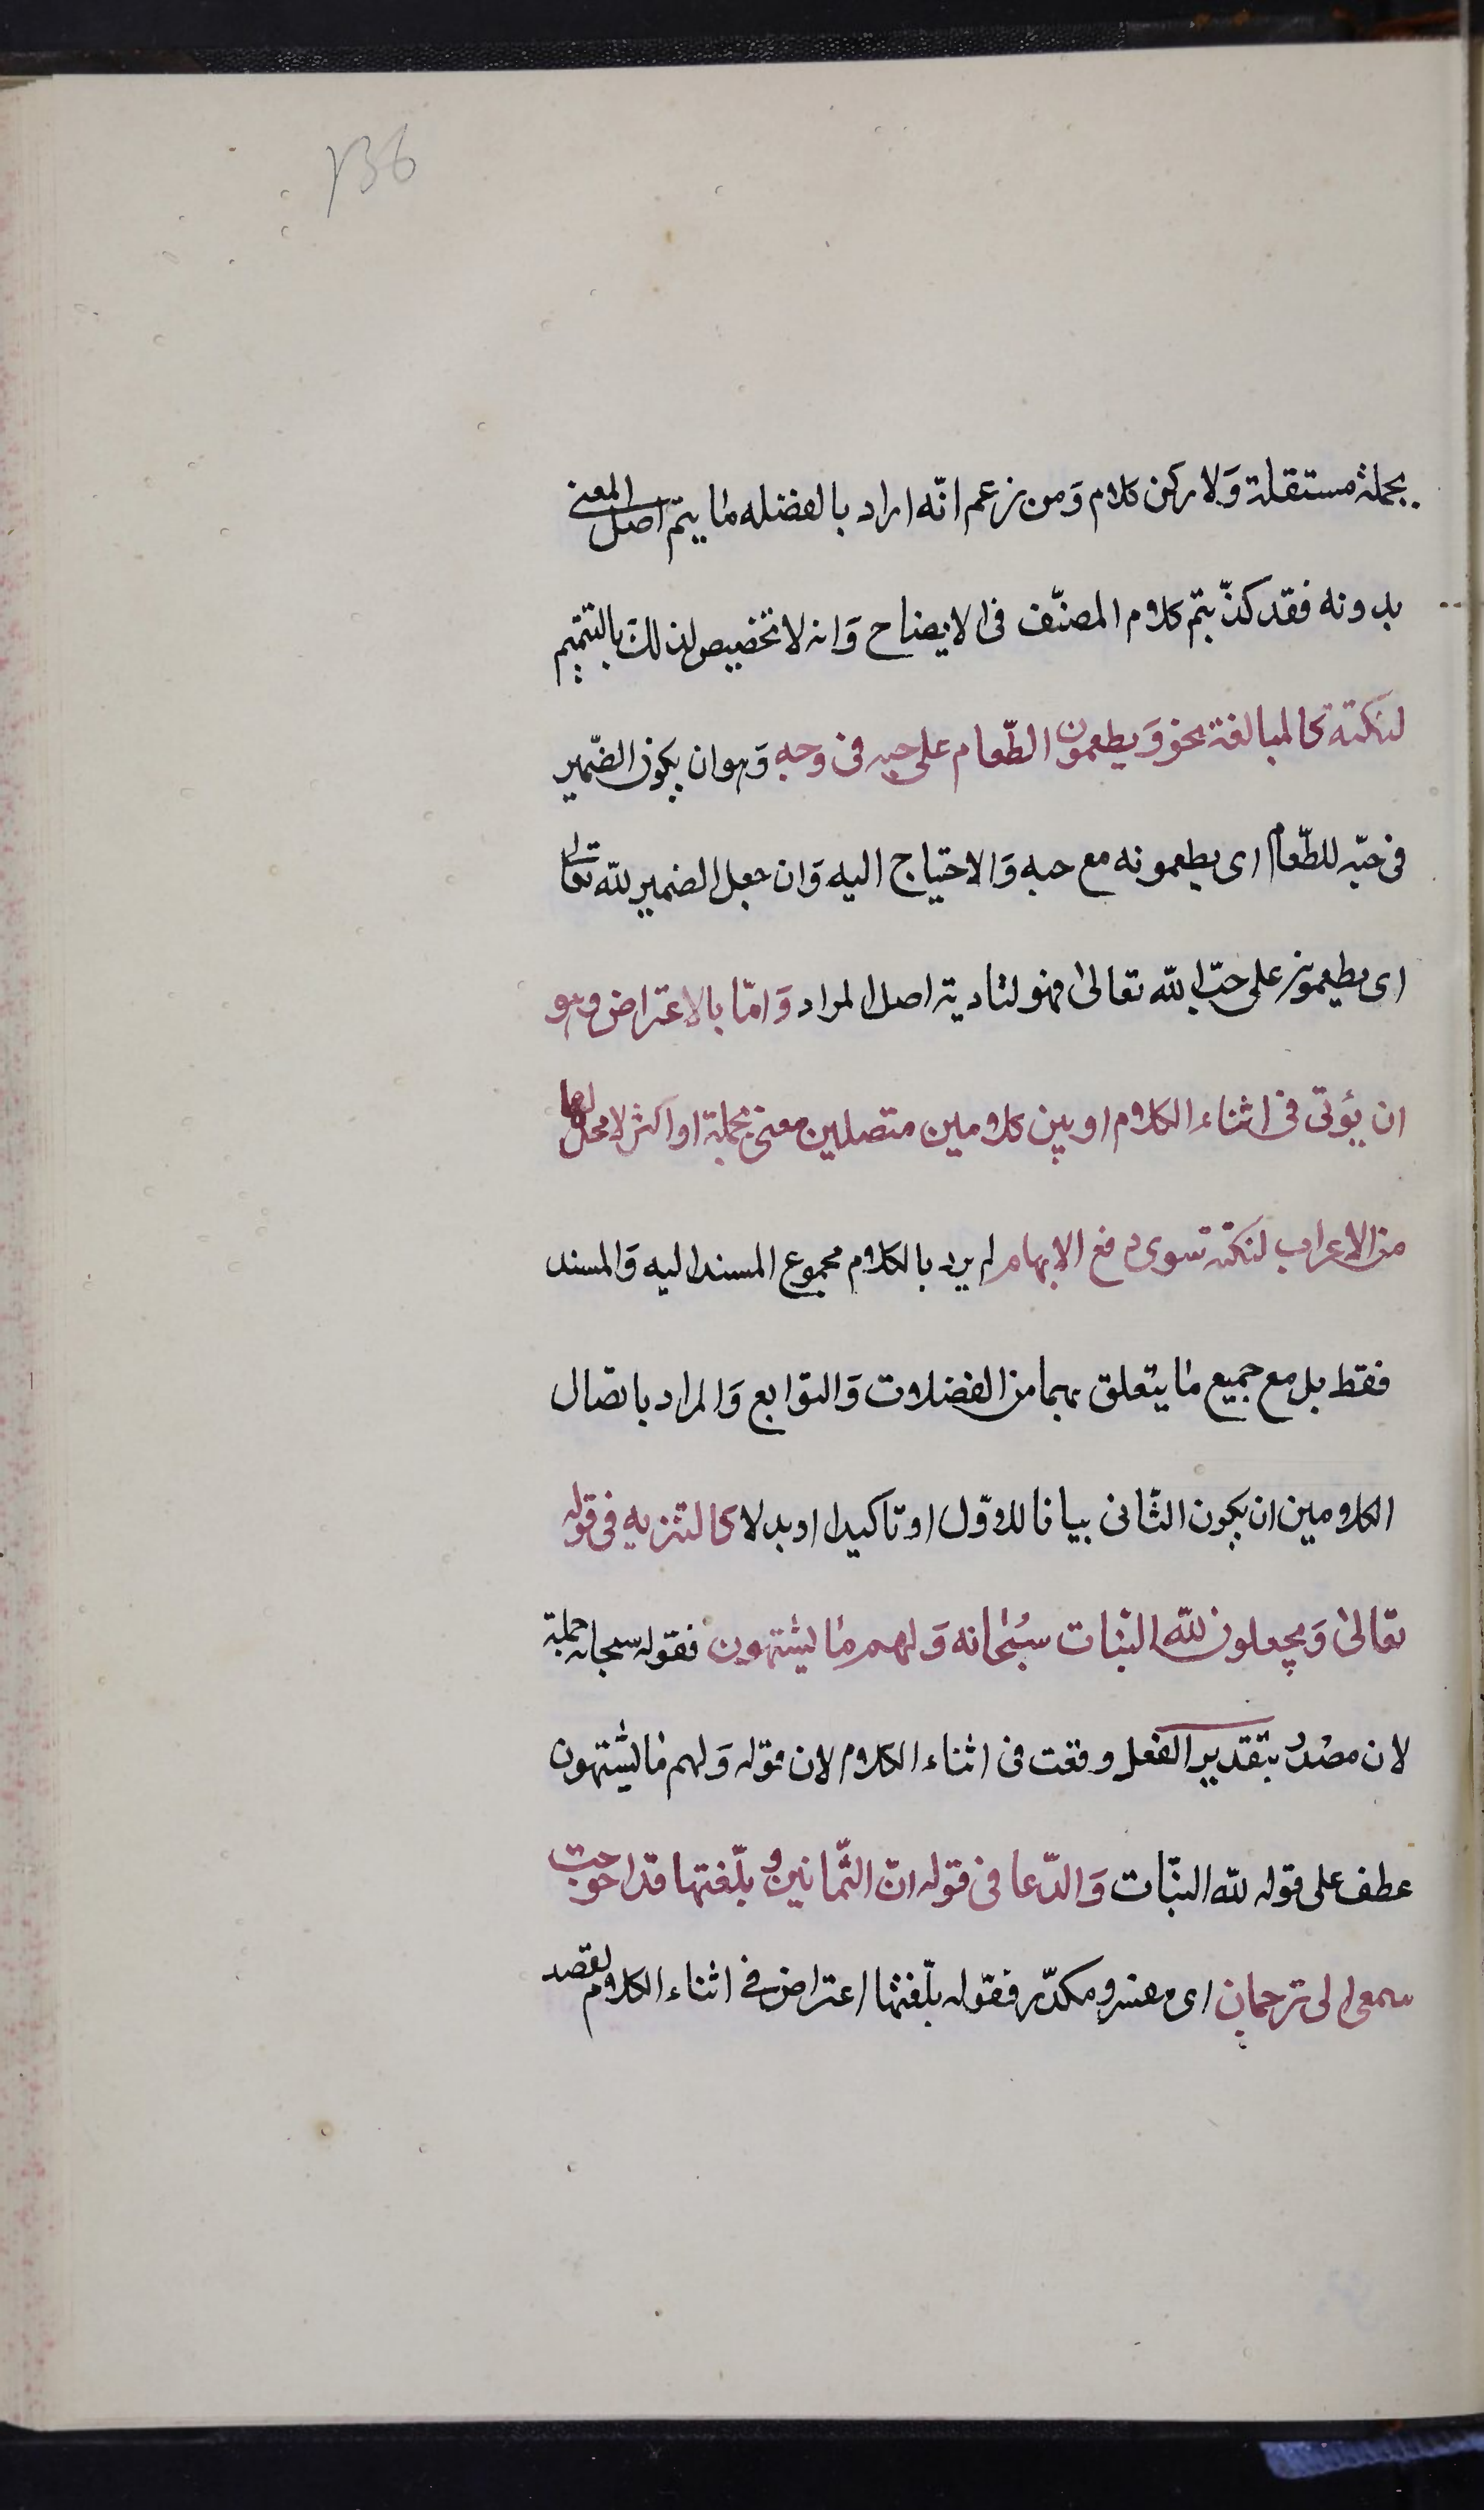 136
بجملة مستقلة وَلا ركن كلام وَمن زعم انّه اراد بالفضله مٰا يتم اصل المعنى
بدونه فقد كذّبتم كلام المصنّف فى الايضاح وَانه لا تخصيص لذلك بالتتميم
لنكتة كالمبالغة نحو وَيطعمون الطّعام على حبه فى وجه وَهو ان يكون الضّمير
فى حبّه للطّعام اى يطعمونه مع حبه وَالاحتياج اليه وَان جعل الضمير للّه تعالى
اى يطعمونه على حبّ اللّه تعالىٰ فهو لتادية اصل المراد وَامّا بالاعتراض وهو
ان يؤتى فى اثناء الكلام او بين كلامين متصلين معنى بجملة او اكثر لا محل لها
من الاعراب لنكتة سوى دفع الابهام لم يرد بالكلام مجموع المسند اليه وَالمسند
فقط بل مع جميع مٰا يتعلق بهما من الفضلات وَالتوابع وَالمراد باتصال
الكلامين ان يكون الثّانى بيانا للاوّل او تاكيدا او بدلا كالتنزيه فى قوله
تعالىٰ وَيجعلون للّه البنات سبُحٰانه وَلهم مٰا يشتهون فقوله سبحانه جملة
لان مصدر بتقدير الفعل وقعت فى اثناء الكلام لان قوله وَلهم مٰا يشتهون
عطف على قوله للّه البنّات وَالدّعا فى قوله انّ الثّمانين وبلّغتها قد احوجت
سمعى الى ترجمان اى مفسر ومكدّر فقوله بلّغتها اعتراض فى اثناء الكلام لقصد